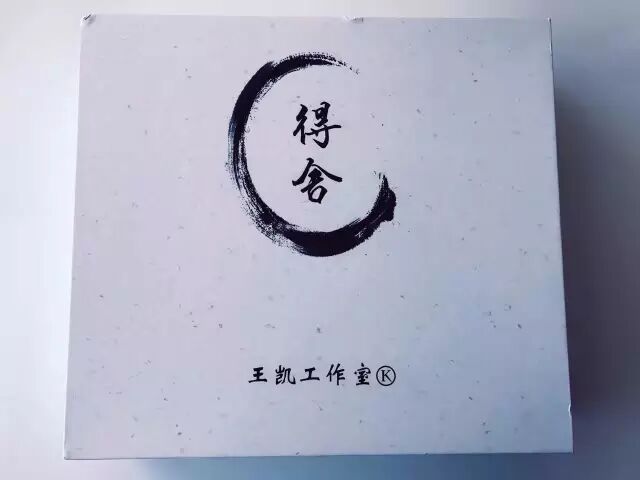 得舍
王凯工作室Ⓚ